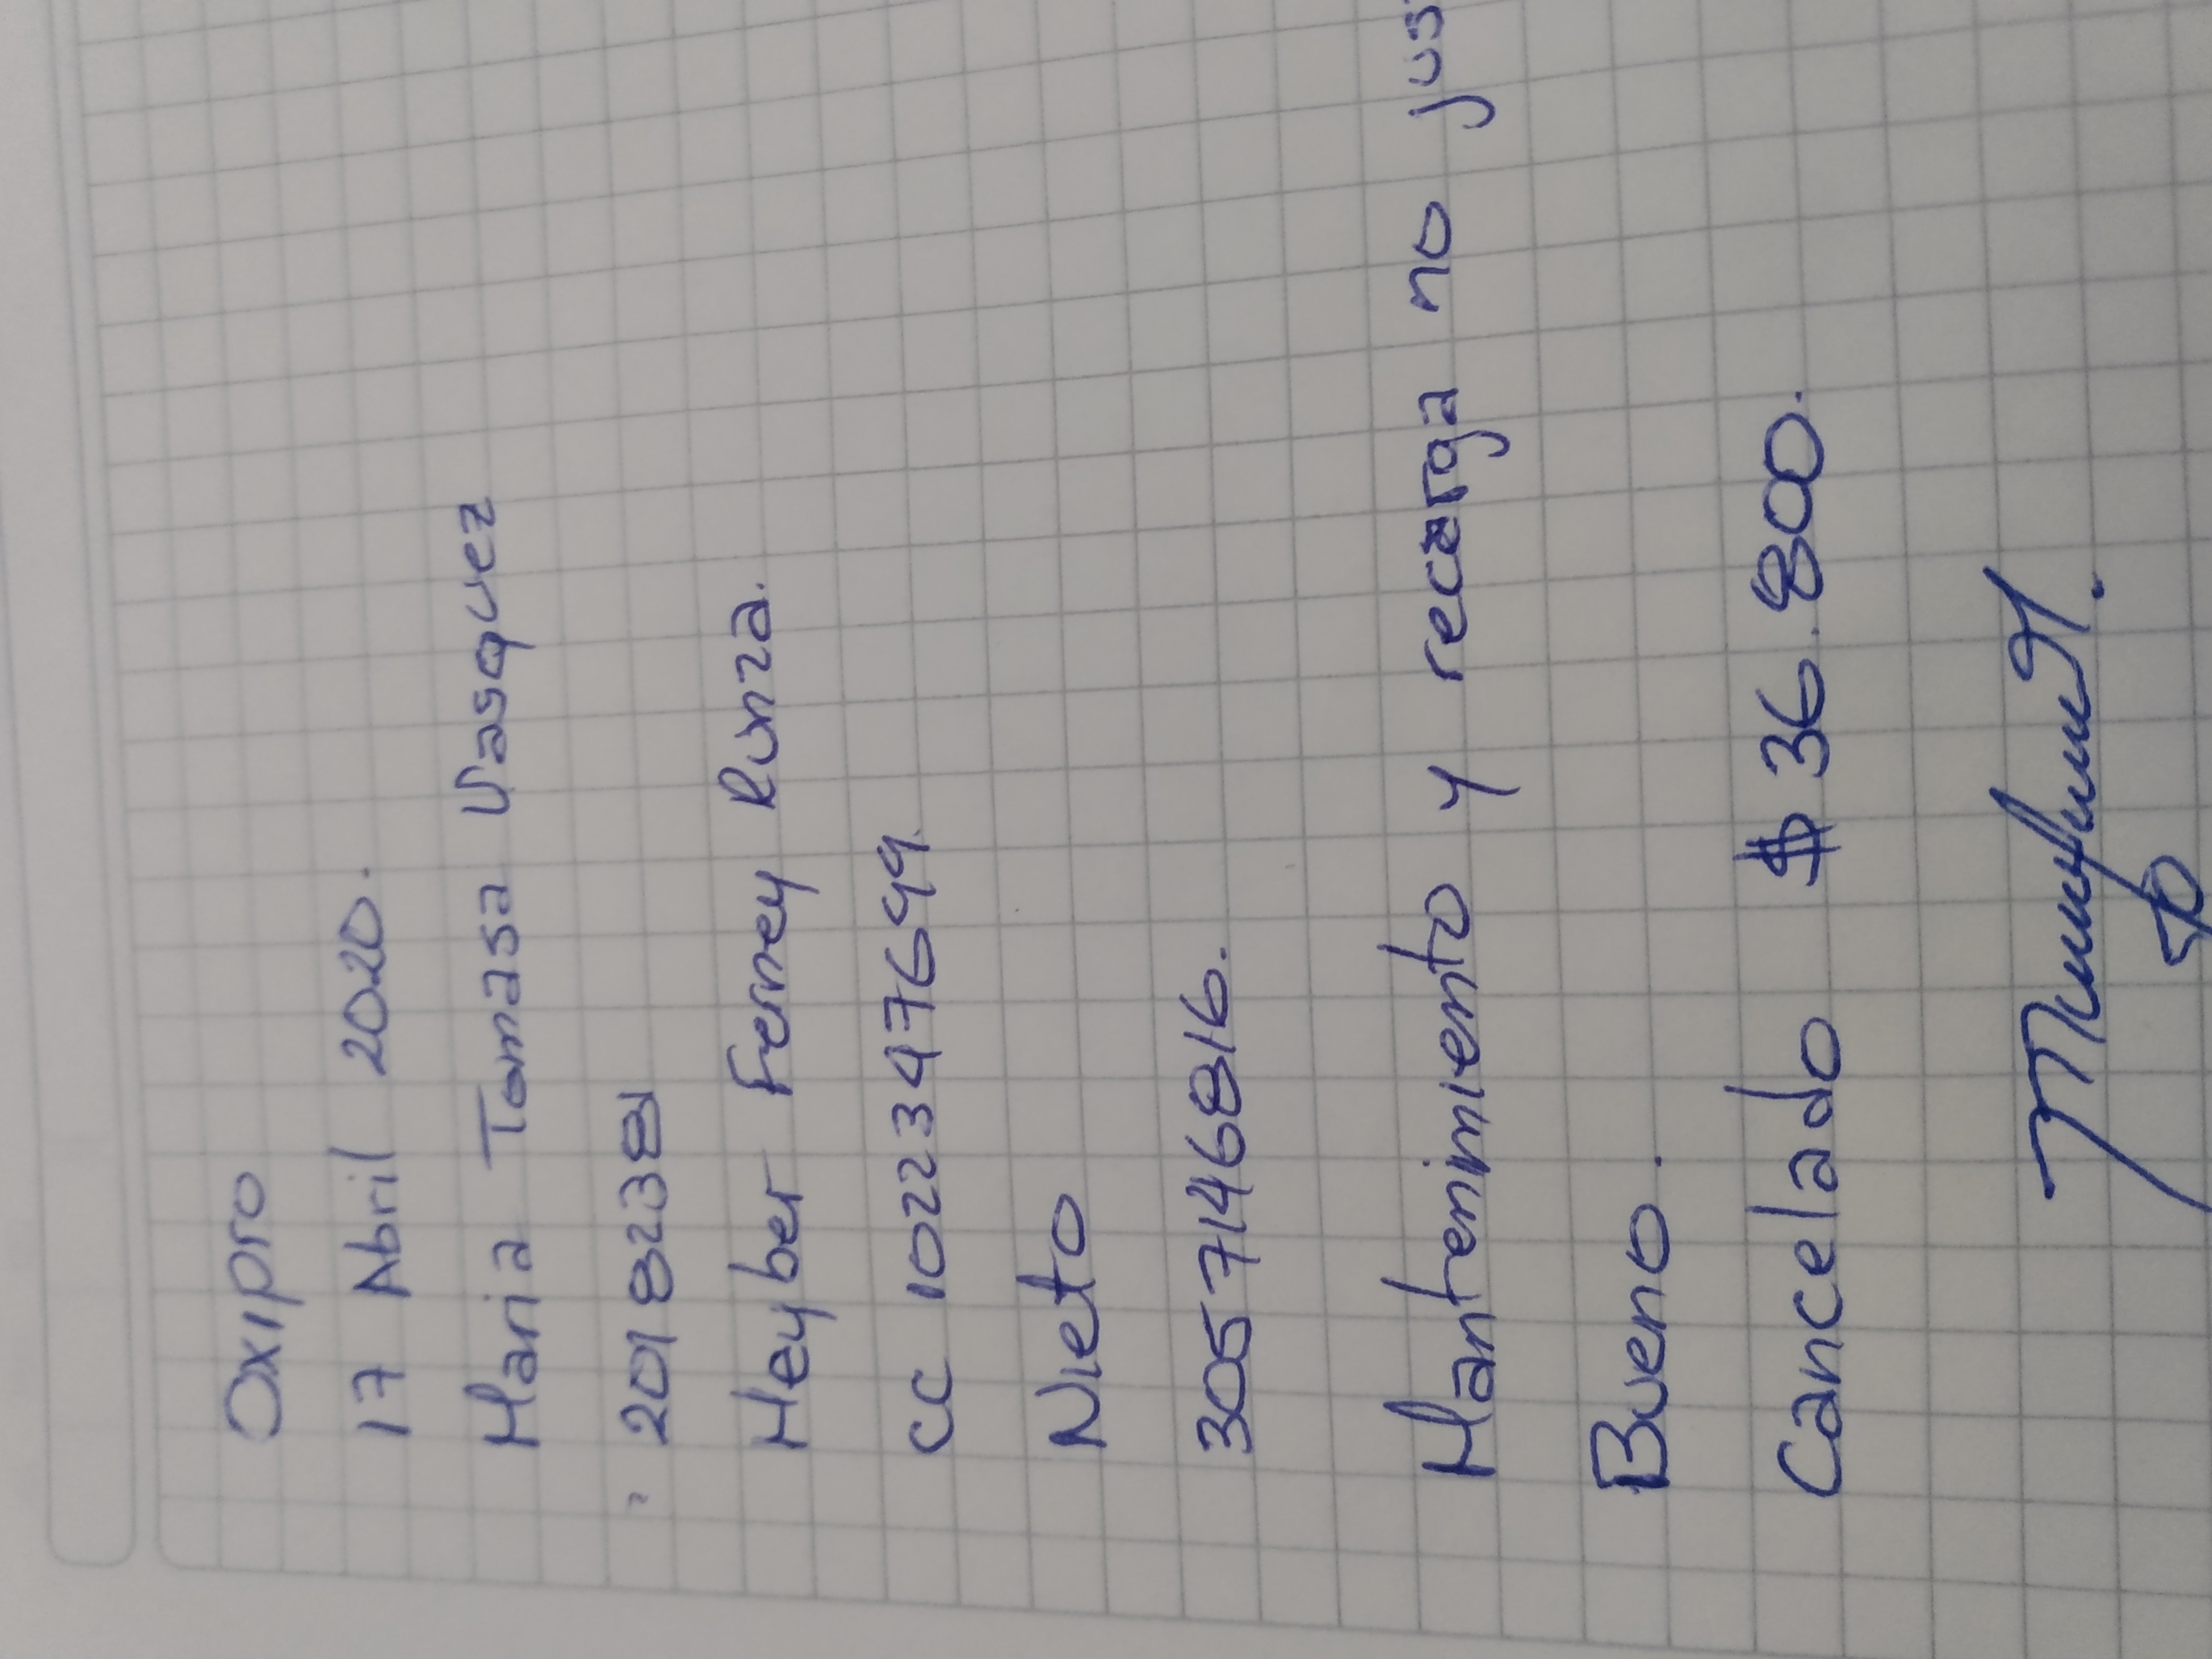 Oxipro
17 Abril 2020.
Maria Tomasa Vasquez
20182381
Heyber Ferney Runza.
CC 1022347699.
Nieto
3057146816.
Mantenimiento y recarga no jus
Bueno.
Cancelado $ 36.800.